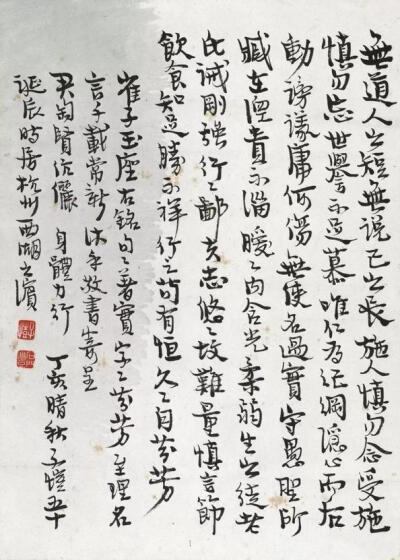 無道人之短無說己之長施人慎勿念受施
慎勿忘世譽不足慕唯仁為紀綱隱心而后
動謗議庸何傷無使名過實守愚聖所
臧在涅貴不淄曖〻內含光柔弱生之徒老
氏誡剛強行〻鄙夫志悠〻故難量慎言節
飲食知足勝不祥行之苟有恒久〻自芬芳
崔子玉座右銘句〻著實字〻芬芳至理名
言千載常新沐手敬書寄呈
君匋賢伉儷 身體力行 丁亥晴秋子愷五十
誕辰時居杭州西湖之濱